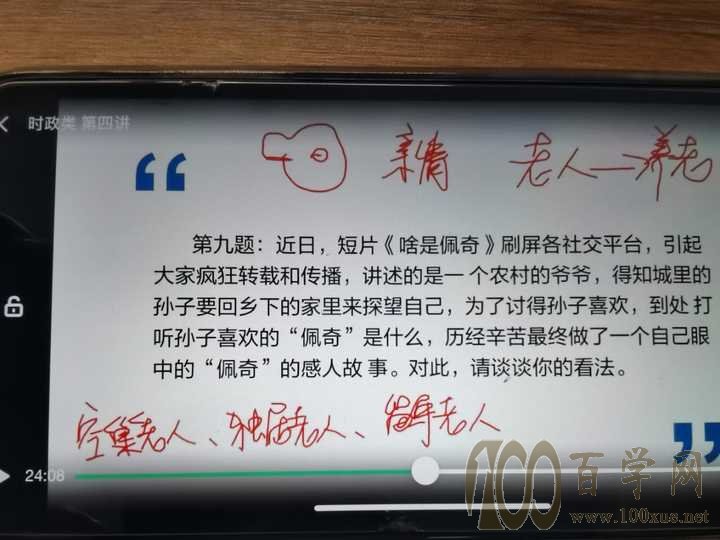 时政类 第四讲
亲情 老人—养老
第九题：近日，短片《啥是佩奇》刷屏各社交平台，引起
大家疯狂转载和传播，讲述的是一个农村的爷爷，得知城里的
孙子要回乡下的家里来探望自己，为了讨得孙子喜欢，到处 打
听孙子喜欢的“佩奇”是什么，历经辛苦最终做了一个自己眼
中的“佩奇”的感人故 事。对此，请谈谈你的看法。
空巢老人、独居老人、留守老人
24:08
100百学网
www.100xus.net